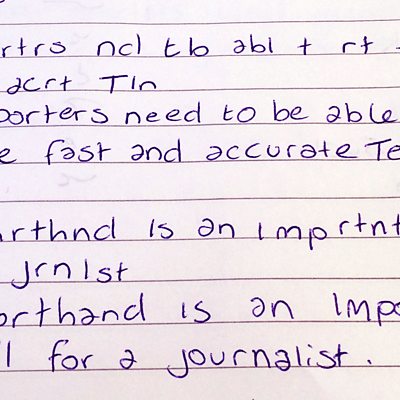 rtrs ncl tb abl + rt
acrt Tln
orters need to be able
e fast and accurate Te
rthnd is an imprtnt
jrnlst
orthand is an Impo
l for a journalist.